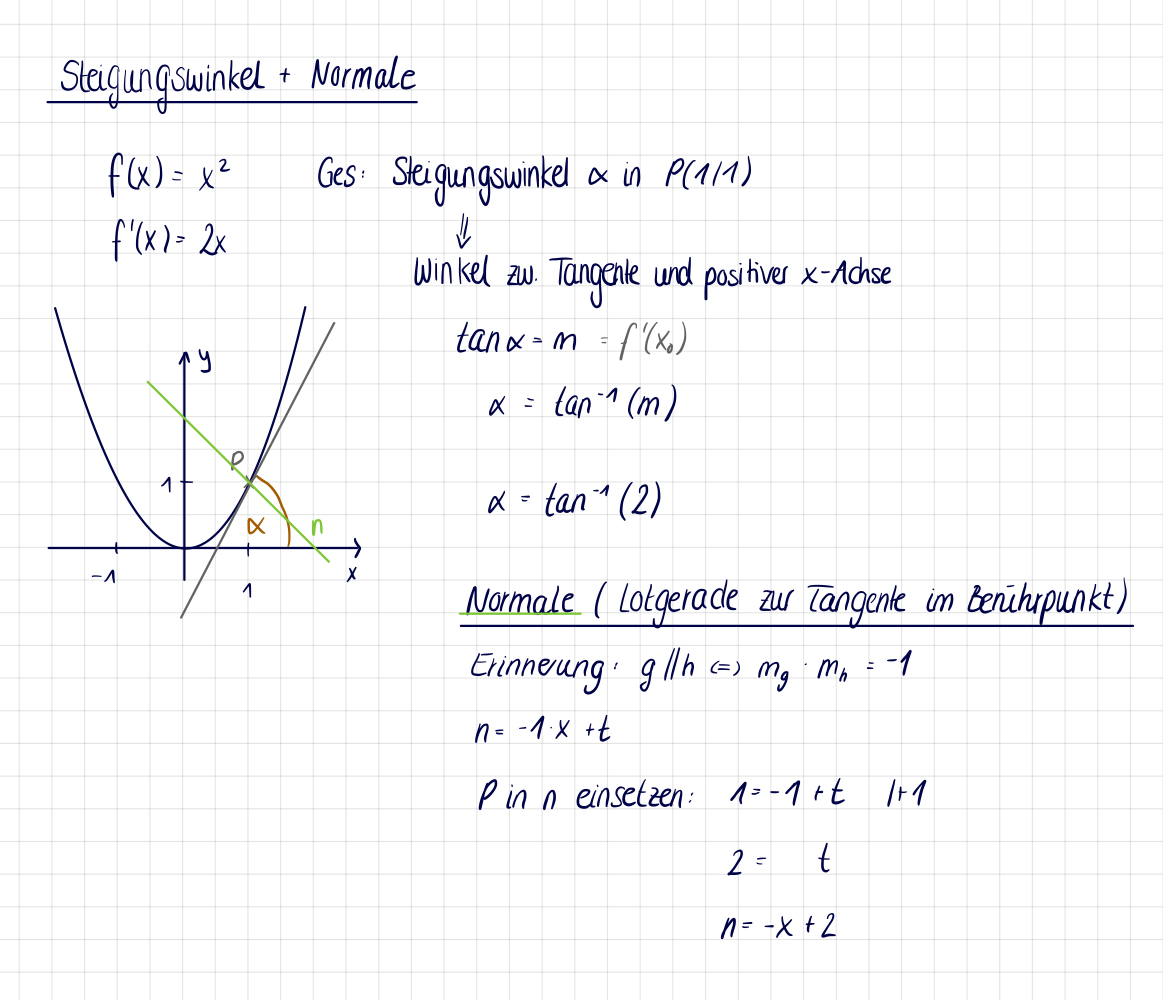 Steigungswinkel + Normale
f(x) = x² Ges: Steigungswinkel α in P(1/1)
f'(x) = 2x
⇓
Winkel zw. Tangente und positiver x-Achse
tan α = m = f'(x₀)
α = tan⁻¹ (m)
α = tan⁻¹ (2)
y
P
1
α
n
-1
1
x
Normale (Lotgerade zur Tangente im Berührpunkt)
Erinnerung: g // h <=> m_g · m_h = -1
n = -1·x + t
P in n einsetzen: 1 = -1 + t |+1
2 = t
n = -x + 2